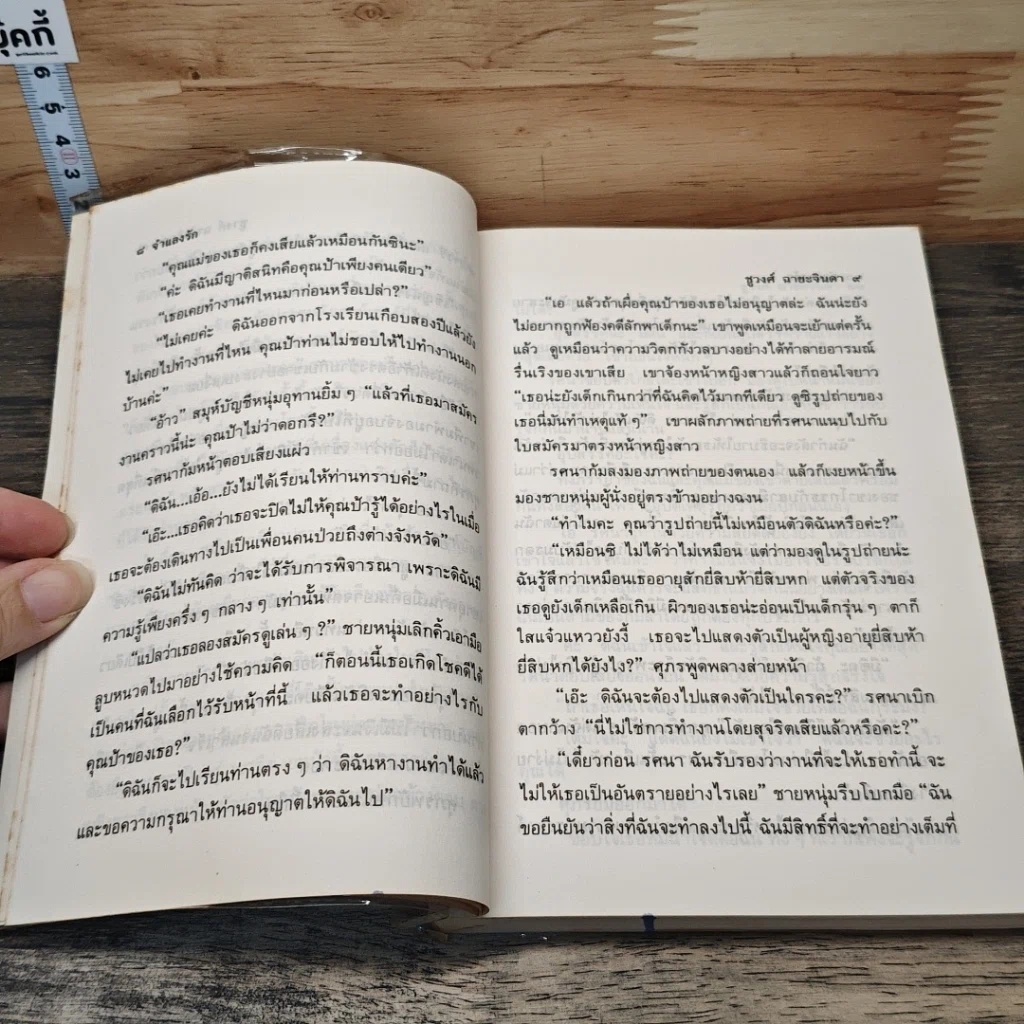 ุ้คกี้
6
5
4
3
๘ จำแลงรัก
“คุณแม่ของเธอก็คงเสียแล้วเหมือนกันซินะ”
“ค่ะ ดิฉันมีญาติสนิทคือคุณป้าเพียงคนเดียว”
“เธอเคยทำงานที่ไหนมาก่อนหรือเปล่า?”
“ไม่เคยค่ะ ดิฉันออกจากโรงเรียนเกือบสองปีแล้วยัง
ไม่เคยไปทำงานที่ไหน คุณป้าท่านไม่ชอบให้ไปทำงานนอก
บ้านค่ะ”
“อ้าว” สมุห์บัญชีหนุ่มอุทานยิ้ม ๆ “แล้วที่เธอมาสมัคร
งานคราวนี้น่ะ คุณป้าไม่ว่าดอกรึ?”
รศนาก้มหน้าตอบเสียงแผ่ว
“ดิฉัน...เอ้อ...ยังไม่ได้เรียนให้ท่านทราบค่ะ”
“เอ๊ะ...เธอคิดว่าเธอจะปิดไม่ให้คุณป้ารู้ได้อย่างไรในเมื่อ
เธอจะต้องเดินทางไปเป็นเพื่อนคนป่วยถึงต่างจังหวัด”
“ดิฉันไม่ทันคิด ว่าจะได้รับการพิจารณา เพราะดิฉันมี
ความรู้เพียงครึ่ง ๆ กลาง ๆ เท่านั้น”
“แปลว่าเธอลองสมัครดูเล่น ๆ ?” ชายหนุ่มเลิกคิ้วเอามือ
ลูบหนวดไปมาอย่างใช้ความคิด “ก็ตอนนี้เธอเกิดโชคดีได้
เป็นคนที่ฉันเลือกไว้รับหน้าที่นี้ แล้วเธอจะทำอย่างไรกับ
คุณป้าของเธอ?”
“ดิฉันก็จะไปเรียนท่านตรง ๆ ว่า ดิฉันหางานทำได้แล้ว
และขอความกรุณาให้ท่านอนุญาตให้ดิฉันไป”
ชูวงศ์ ฉายะจินดา ๙
“เอ แล้วถ้าเผื่อคุณป้าของเธอไม่อนุญาตล่ะ ฉันน่ะยัง
ไม่อยากถูกฟ้องคดีลักพาเด็กนะ” เขาพูดเหมือนจะเย้าแต่ครั้น
แล้ว ดูเหมือนว่าความวิตกกังวลบางอย่างได้ทำลายอารมณ์
รื่นเริงของเขาเสีย เขาจ้องหน้าหญิงสาวแล้วก็ถอนใจยาว
“เธอน่ะยังเด็กเกินกว่าที่ฉันคิดไว้มากทีเดียว ดูซิรูปถ่ายของ
เธอนี่มันทำเหตุแท้ ๆ” เขาผลักภาพถ่ายที่รศนาแนบไปกับ
ใบสมัครมาตรงหน้าหญิงสาว
รศนาก้มลงมองภาพถ่ายของตนเอง แล้วก็เงยหน้าขึ้น
มองชายหนุ่มผู้นั่งอยู่ตรงข้ามอย่างฉงน
“ทำไมคะ คุณว่ารูปถ่ายนี้ไม่เหมือนตัวดิฉันหรือค่ะ?”
“เหมือนซิ ไม่ได้ว่าไม่เหมือน แต่ว่ามองดูในรูปถ่ายน่ะ
ฉันรู้สึกว่าเหมือนเธออายุสักยี่สิบห้ายี่สิบหก แต่ตัวจริงของ
เธอดูยังเด็กเหลือเกิน ผิวของเธอน่ะอ่อนเป็นเด็กรุ่น ๆ ตาก็
ใสแจ๋วแหววยังงี้ เธอจะไปแสดงตัวเป็นผู้หญิงอายุยี่สิบห้า
ยี่สิบหกได้ยังไง?” ศุภรพูดพลางส่ายหน้า
“เอ๊ะ ดิฉันจะต้องไปแสดงตัวเป็นใครคะ?” รศนาเบิก
ตากว้าง “นี่ไม่ใช่การทำงานโดยสุจริตเสียแล้วหรือคะ?”
“เดี๋ยวก่อน รศนา ฉันรับรองว่างานที่จะให้เธอทำนี้ จะ
ไม่ให้เธอเป็นอันตรายอย่างไรเลย” ชายหนุ่มรีบโบกมือ “ฉัน
ขอยืนยันว่าสิ่งที่ฉันจะทำลงไปนี้ ฉันมีสิทธิ์ที่จะทำอย่างเต็มที่